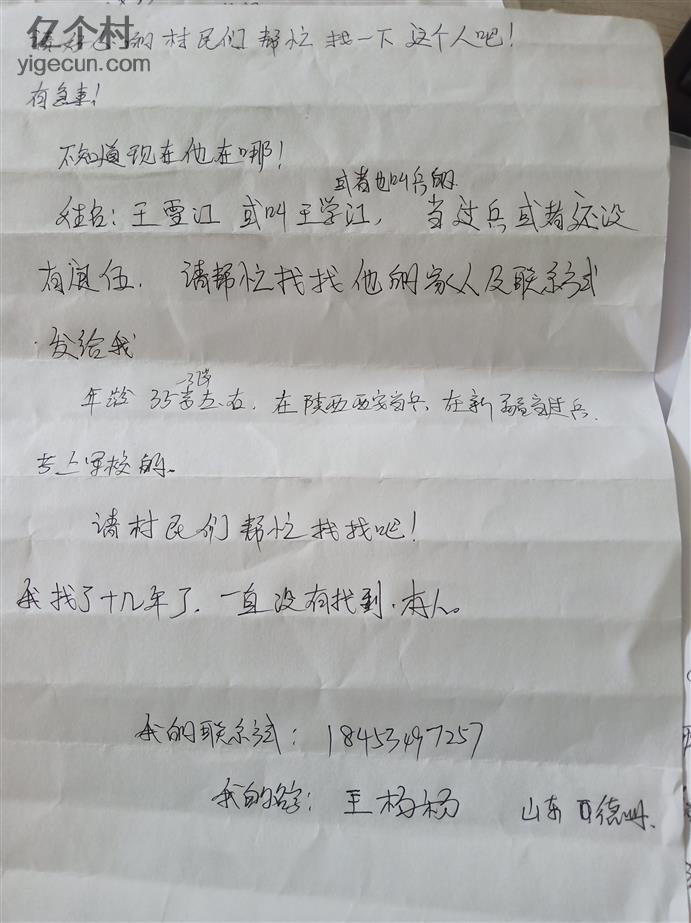 亿个村
yigecun.com
请好心的村民们帮忙找一下这个人吧！
有急事！
不知道现在他在哪！
或者也叫兵的
姓名：王雪江 或叫王学江， 当过兵或者还没
有退伍． 请帮忙找找他的家人及联系方式
．发给我
年龄 35岁左右．在陕西西安当兵．在新疆当过兵．
考上军校的．
请村民们帮忙找找吧！
我找了十几年了．一直没有找到．本人。
我的联系方式：18453497257
我的名字：王杨杨 山东 德州．